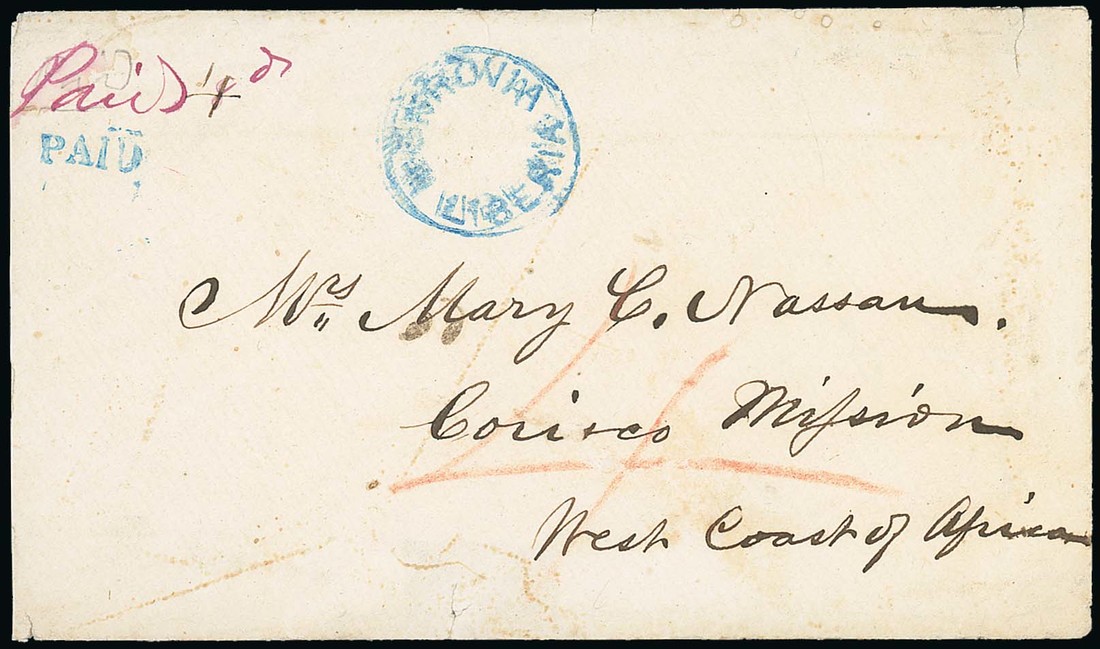 Paid 4d
PAID
MONROVIA
LIBERIA
Mrs Mary C. Nassau.
4
Corisco Mission
West Coast of Africa